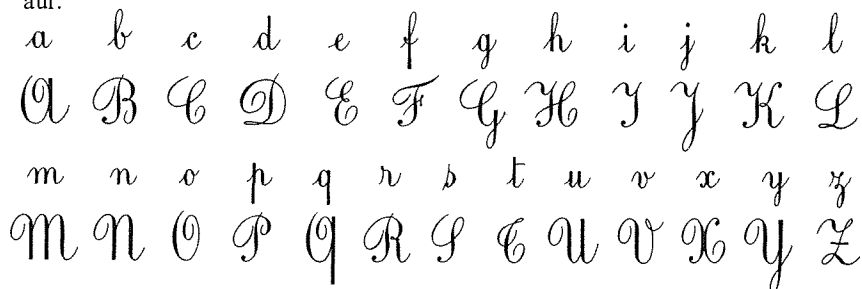 auf.
a b c d e f g h i j k l
A B C D E F G H I J K L
m n o p q r s t u v x y z
M N O P Q R S T U V X Y Z